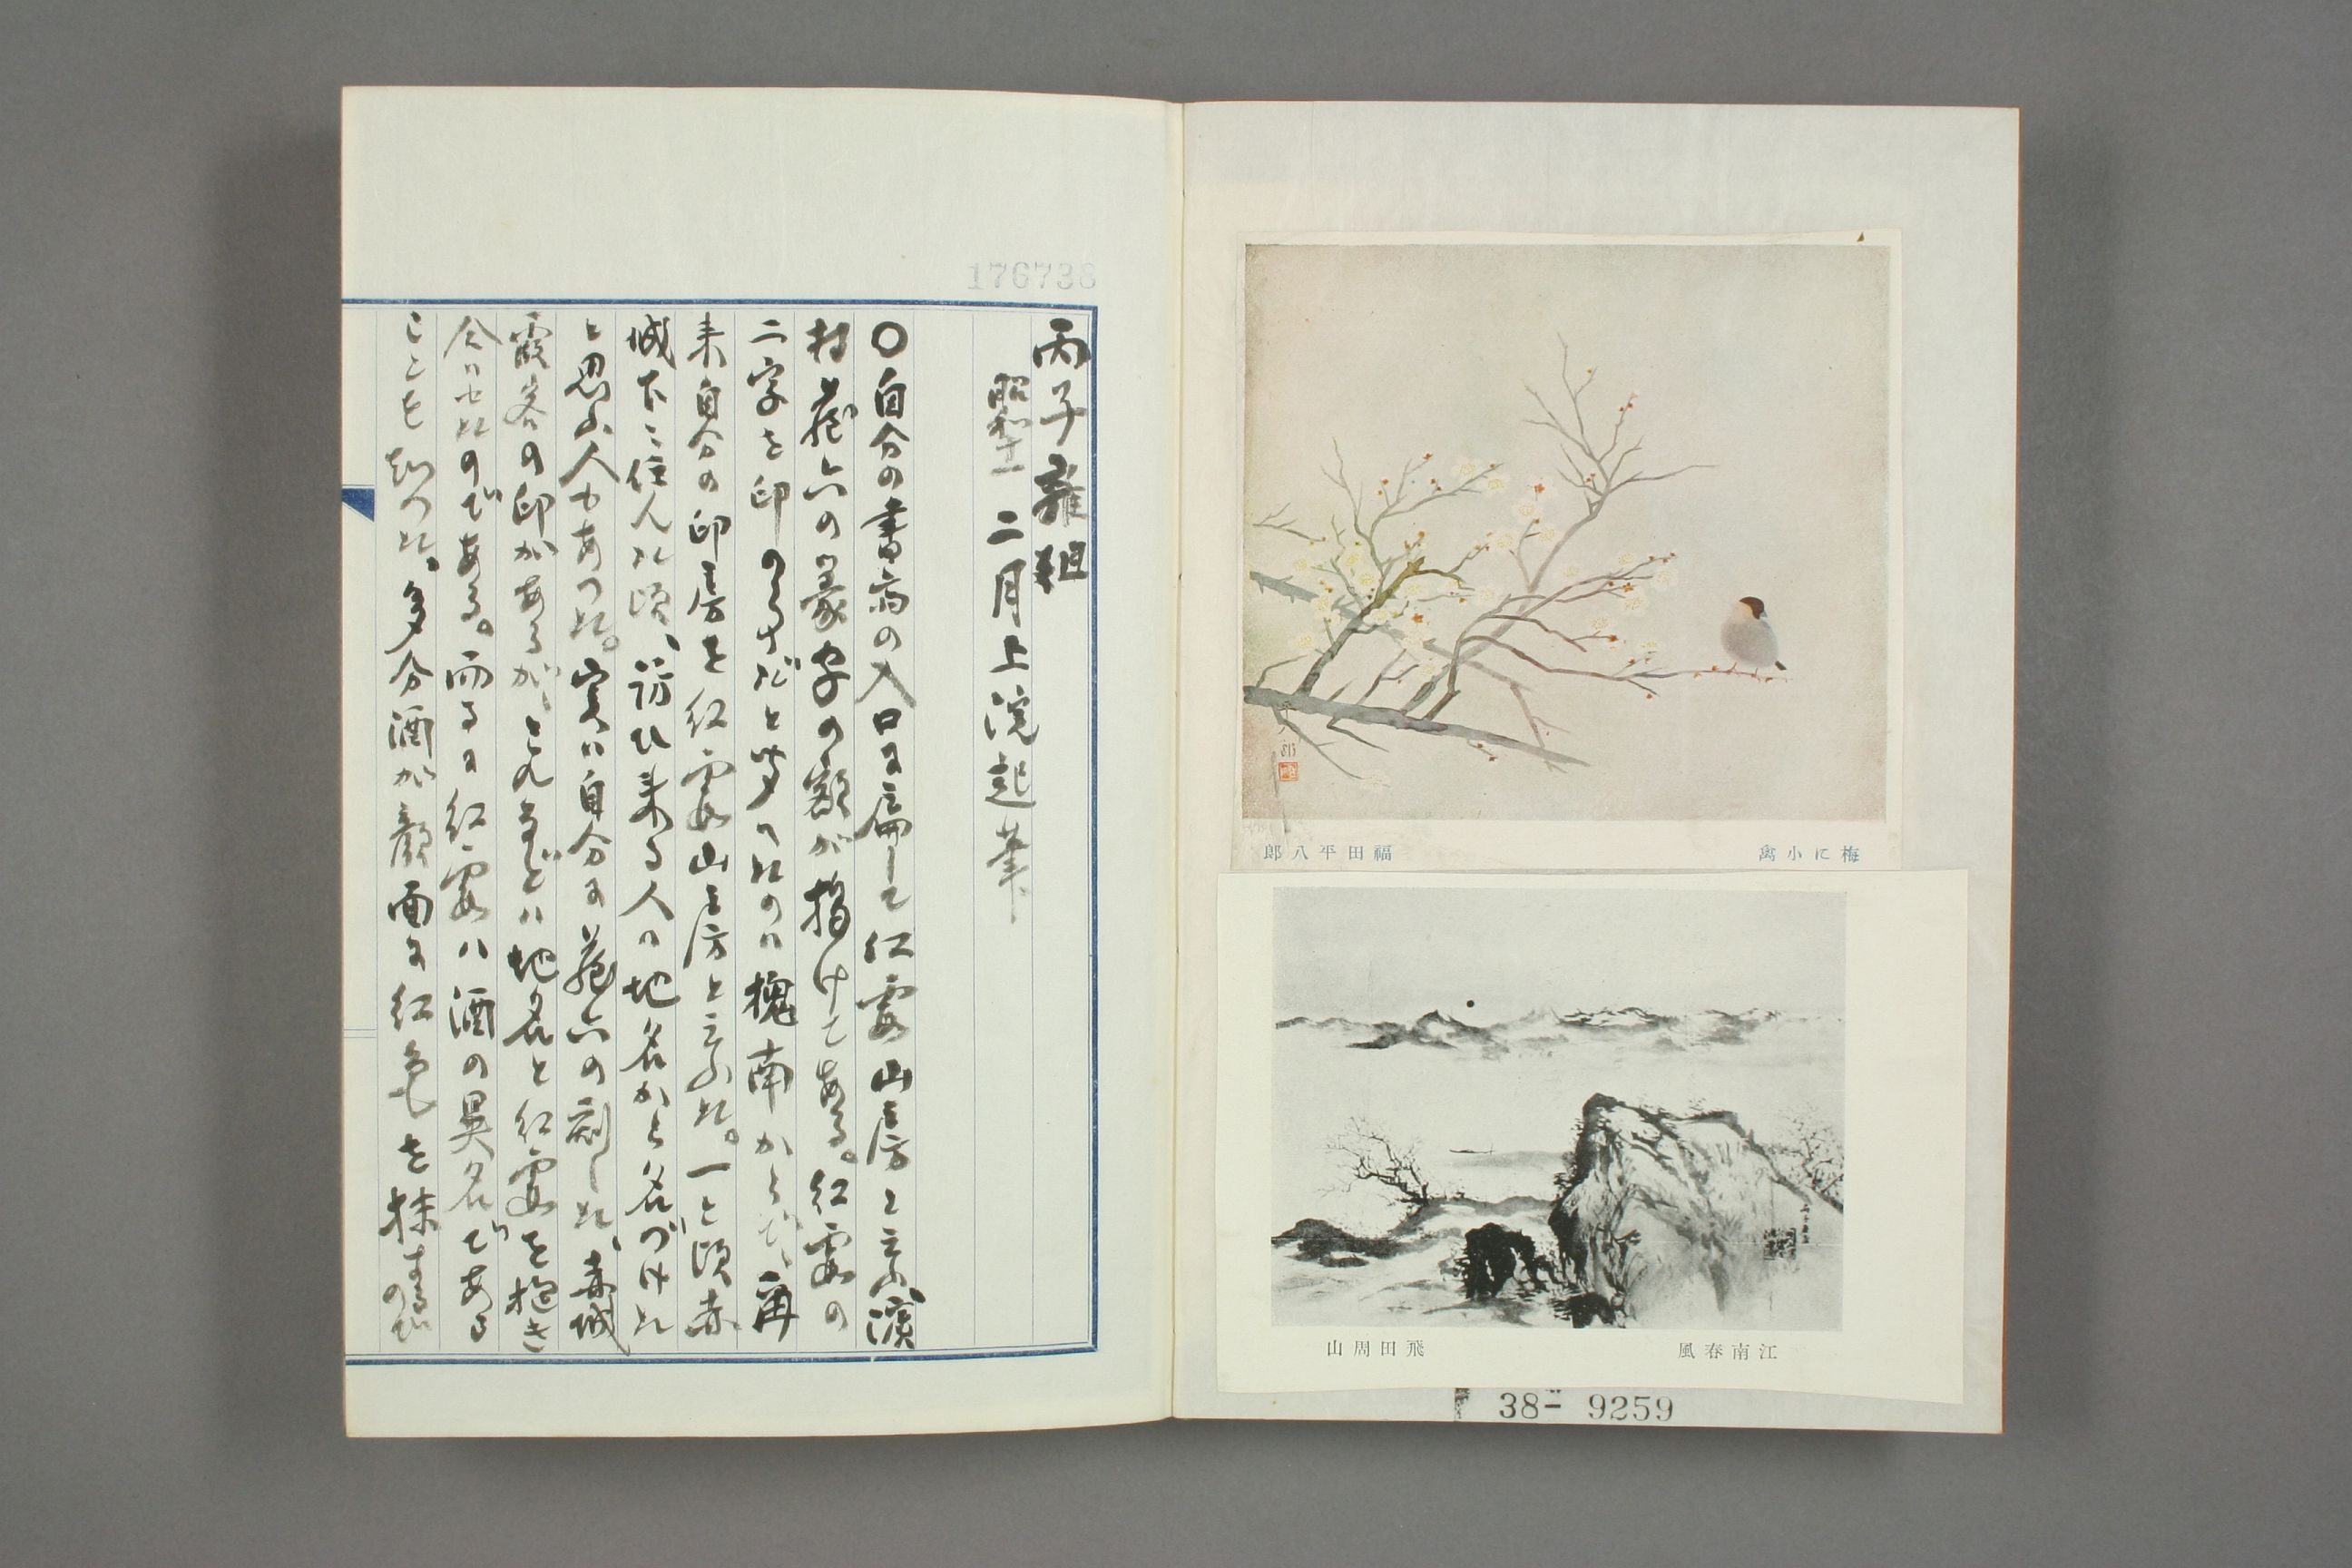 梅に小禽
福田平八郎
江南春風
飛田周山
38- 9259
176738
丙子雜俎
昭和十一 二月上浣起筆
○自分の書斎の入口に扁して紅霞山房と云ふ濱
村蔵六の篆字の額が掲げてある。紅霞の
二字を印のうちだと思つたのは槐南からで、再
来自分の印房を紅霞山房と云ふた。一と頃赤
城下に住んだ頃、訪ひ来る人は地名から名づけた
と思ふ人もあつた。実は自分に蔵六の刻した、赤城
霞客の印があるが、これなどは地名と紅霞を抱き
合はせたのである。而るに紅霞ハ酒の異名である
ことも知つた。多分酒が顔面に紅色を抹するの